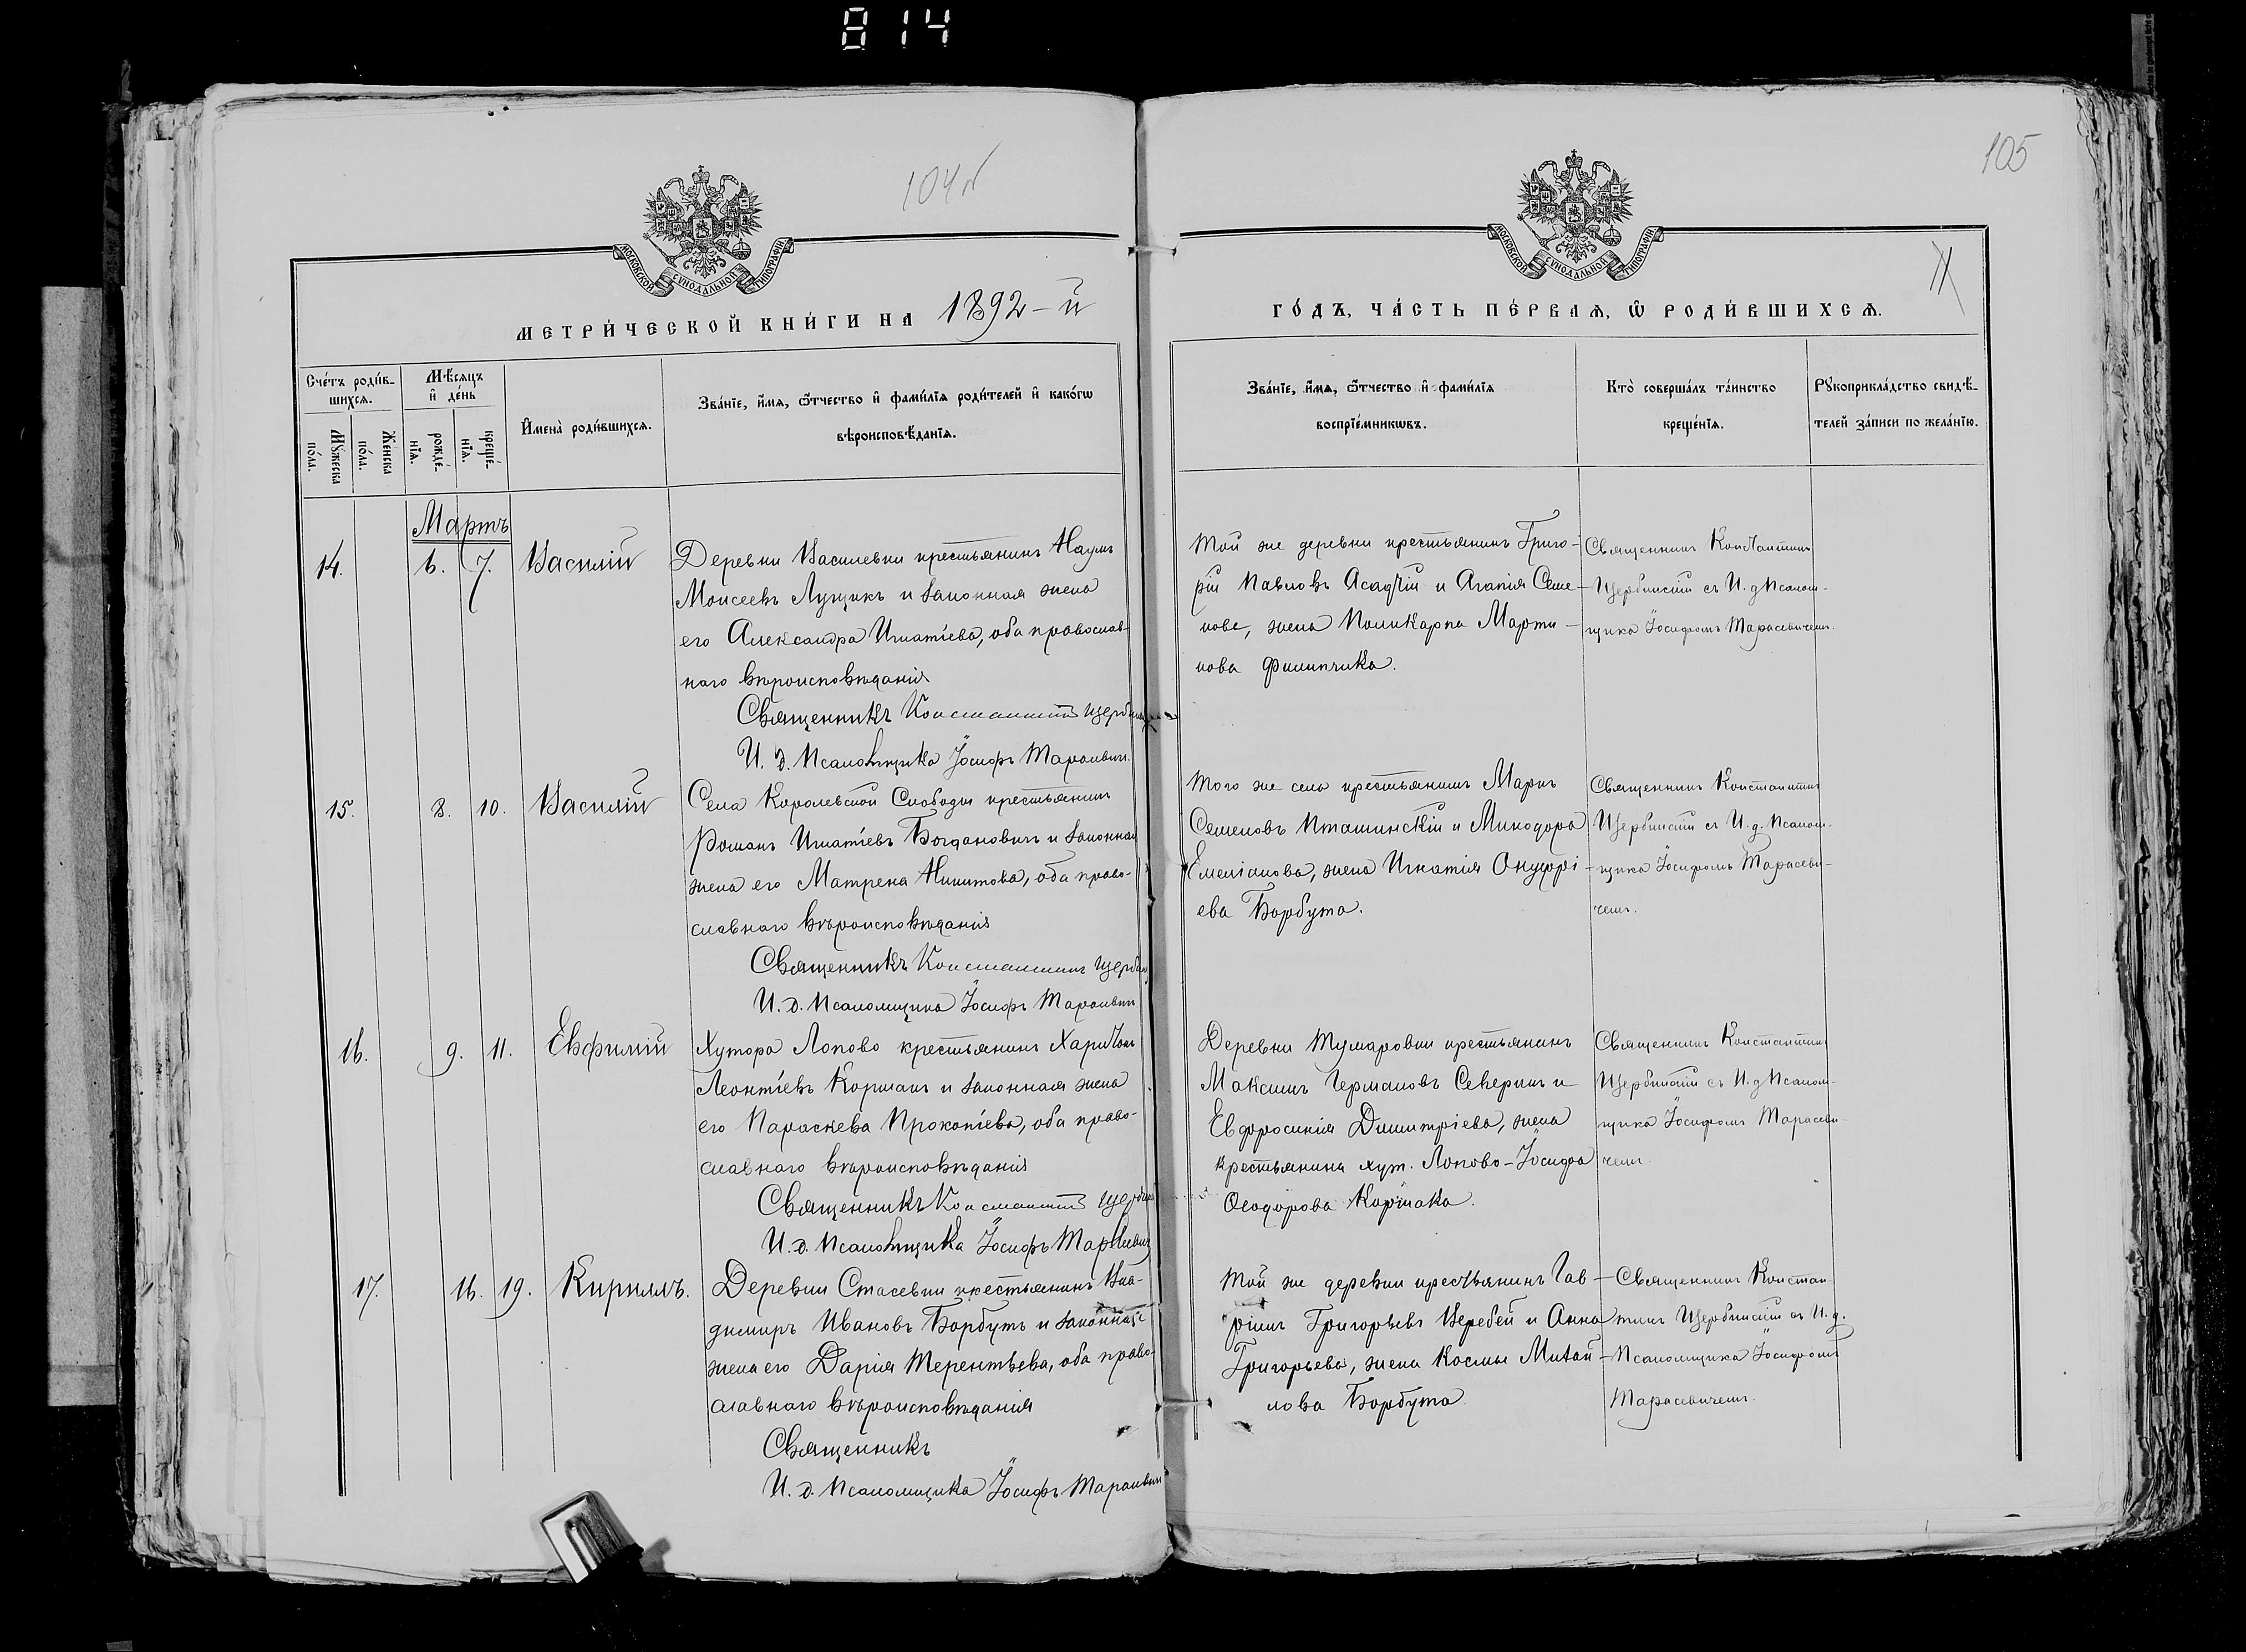 814
104 об
105
МОСКОВСКОЙ СѴНОДАЛЬНОЙ ТИПОГРАФІИ
МОСКОВСКОЙ СѴНОДАЛЬНОЙ ТИПОГРАФІИ
11
МЕТРИ́ЧЕСКОЙ КНИ́ГИ НА 1892-й
ГО́ДЪ, ЧА́СТЬ ПЕ́РВАѦ, Ѽ РОДИ́ВШИХСѦ.
Сче́тъ роди́в-
шихсѧ.
Мꙋ́жеска
по́ла.
Же́нска
по́ла.
Мѣ́сѧцъ
и҆ де́нь
рожде́-
нїѧ.
креще́-
нїѧ.
И҆мена̀ роди́вшихсѧ.
Зва́нїе, и҆́мѧ, ѻ҆́тчество и҆ фами́лїѧ роди́телей и҆ како́гѡ
вѣроисповѣ́данїѧ.
Зва́нїе, и҆́мѧ, ѻ҆́тчество и҆ фами́лїѧ
воспрїе́мникѡвъ.
Кто̀ соверша́лъ та́инство
креще́нїѧ.
Рꙋкоприкла́дство свидѣ́-
телей за́писи по жела́нїю.
Мартъ
14. 6. 7. Василій
Деревни Василевки крестьянинъ Наумъ
Моисеевъ Лущикъ и законная жена
его Александра Игнатіева, оба православ-
наго вѣроисповѣданія
Священникъ Константинъ Щербин
И. д. Псаломщика Іосифъ Тарасевич
Той же деревни крестьянинъ Григо-
рій Павловъ Асадчій и Агапія Семе-
нова, жена Поликарпа Марти-
нова Филипчика.
Священникъ Константинъ
Щербинскій съ И. д Псалом-
щика Іосифомъ Тарасевичемъ.
15. 8. 10. Василій
Села Королевской Слободы крестьянинъ
Романъ Игнатіевъ Богдановичъ и законная
жена его Матрена Никитова, оба право-
славнаго вѣроисповѣданія
Священникъ Константинъ Щербин
И. д. Псаломщика Іосифъ Тарасевич
Того же села крестьянинъ Маркъ
Семеновъ Пташинскій и Минодора
Емеліанова, жена Игнатія Онуфрі-
ева Борбута.
Священникъ Константинъ
Щербинскій съ И. д. Псалом-
щика Іосифомъ Тарасеви-
чемъ.
16. 9. 11. Евфимій
Хутора Лопово крестьянинъ Харитонъ
Леонтіевъ Коршакъ и законная жена
его Параскева Прокопіева, оба право-
славнаго вѣроисповѣданія
Священникъ Константинъ Щербин
И. д. Псаломщика Іосифъ Тарасевич
Деревни Тумаровки крестьянинъ
Максимъ Германовъ Северинъ и
Евфросинія Димитріева, жена
крестьянина хут. Лопово-Іосифа
Ѳеодорова Коршака.
Священникъ Константинъ
Щербинскій съ И. д Псалом-
щика Іосифомъ Тарасеви-
чемъ
17. 16. 19. Кириллъ.
Деревни Стасевки крестьянинъ Вла-
димиръ Ивановъ Борбутъ и законная
жена его Дарія Терентьева, оба право-
славнаго вѣроисповѣданія
Священникъ
И. д. Псаломщика Іосифъ Тарасевич
Той же деревни крестьянинъ Гав-
ріилъ Григорьевъ Веребей и Анна
Григорьева, жена Космы Михай-
лова Борбута
Священникъ Констан-
тинъ Щербинскій съ И. д.
Псаломщика Іосифомъ
Тарасевичемъ.